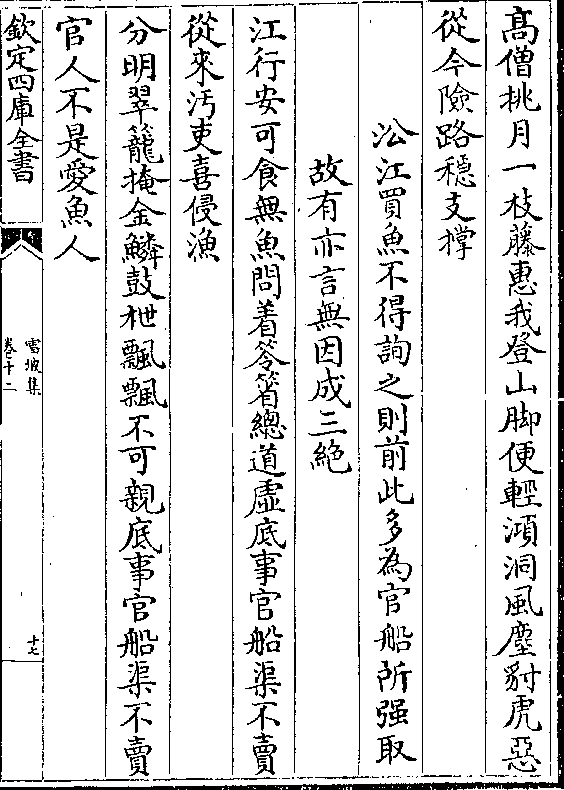 髙僧挑月一枝藤惠我登山脚便輕澒洞風塵豺虎惡
從今險路穩支撑
㳂江買魚不得詢之則前此多為官船所强取
故有亦言無因成三絶
江行安可食無魚問着笭箵總道虛底事官船渠不賣
從來汚吏喜侵漁
分明翠籠掩金鱗鼓枻飄飄不可親底事官船渠不賣
官人不是愛魚人
欽定四庫全書
雪坡集
卷十二
十七